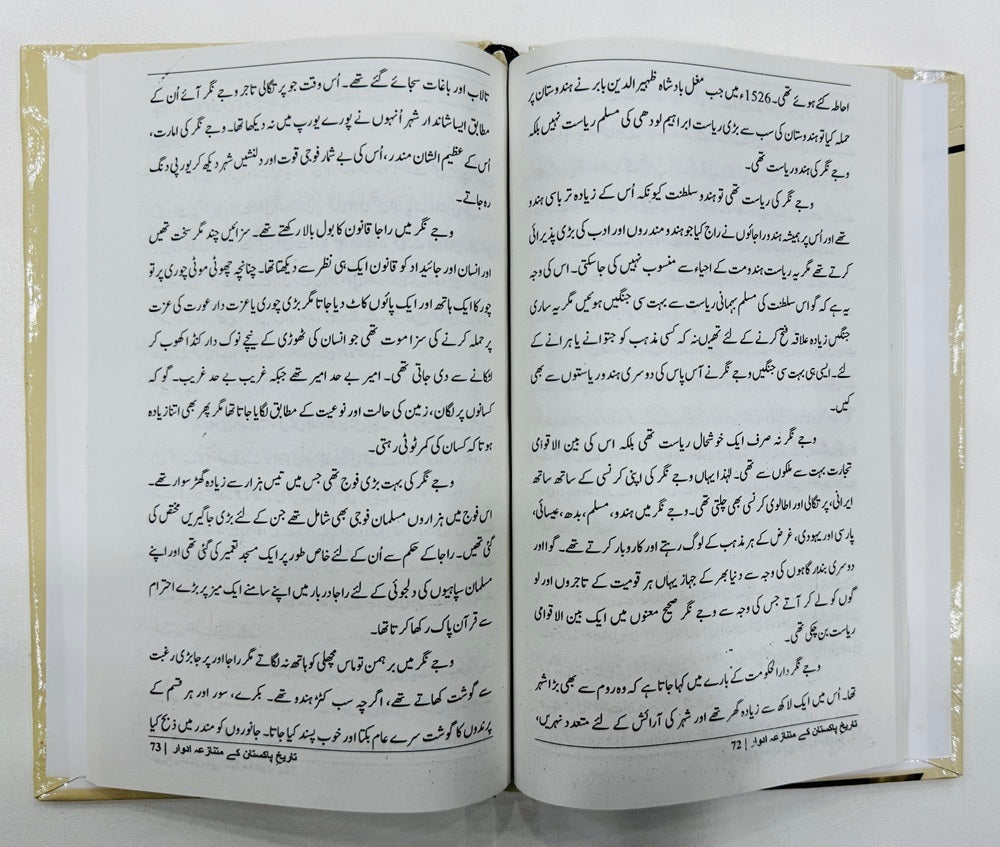 احاطہ کئے ہوئے تھی۔ 1526ء میں جب مغل بادشاہ ظہیر الدین بابر نے ہندوستان پر
حملہ کیا تو ہندوستان کی سب سے بڑی ریاست ابراہیم لودھی کی مسلم ریاست نہیں بلکہ
وجے نگر کی ہندو ریاست تھی۔
وجے نگر کی ریاست تھی تو ہندو سلطنت کیونکہ اُس کے زیادہ تر باسی ہندو
تھے اور اُس پر ہمیشہ ہندو راجائوں نے راج کیا جو ہندو مندروں اور ادب کی بڑی پذیرائی
کرتے تھے مگر یہ ریاست ہندومت کے احیاء سے منسوب نہیں کی جاسکتی۔ اس کی وجہ
یہ ہے کہ گو اس سلطنت کی مسلم بہمانی ریاست سے بہت سی جنگیں ہوئیں مگر یہ ساری
جنگیں زیادہ علاقہ فتح کرنے کے لئے تھیں نہ کہ کسی مذہب کو جتوانے یا ہرانے کے
لئے۔ ایسی ہی بہت سی جنگیں وجے نگر نے آس پاس کی دوسری ہندو ریاستوں سے بھی
کیں۔
وجے نگر نہ صرف ایک خوشحال ریاست تھی بلکہ اس کی بین الاقوامی
تجارت بہت سے ملکوں سے تھی۔ لہٰذا یہاں وجے نگر کی اپنی کرنسی کے ساتھ ساتھ
ایرانی، پرتگالی اور اطالوی کرنسی بھی چلتی تھی۔ وجے نگر میں ہندو، مسلم، بدھ، عیسائی،
پارسی اور یہودی، غرض کے ہر مذہب کے لوگ رہتے اور کاروبار کرتے تھے۔ گوا اور
دوسری بندار گاہوں کی وجہ سے دنیا بھر کے جہاز یہاں ہر قومیت کے تاجروں اور لو
گوں کو لے کر آتے جس کی وجہ سے وجے نگر صحیح معنوں میں ایک بین الاقوامی
ریاست بن چکی تھی۔
وجے نگر دارالحکومت کے بارے میں کہا جاتا ہے کہ وہ روم سے بھی بڑا شہر
تھا۔ اُس میں ایک لاکھ سے زیادہ گھر تھے اور شہر کی آرائش کے لئے متعدد نہریں،
تاریخ پاکستان کے متنازعہ ادوار | 72
تالاب اور باغات سجائے گئے تھے۔ اُس وقت جو پرتگالی تاجر وجے نگر آئے اُن کے
مطابق ایسا شاندار شہر اُنہوں نے پورے یورپ میں نہ دیکھا تھا۔ وجے نگر کی امارت،
اُس کے عظیم الشان مندر، اُس کی بے شمار فوجی قوت اور دلنشیں شہر دیکھ کر یورپی دنگ
رہ جاتے۔
وجے نگر میں راجا قانون کا بول بالا رکھتے تھے۔ سزائیں چند مگر سخت تھیں
اور انسان اور جائیداد کو قانون ایک ہی نظر سے دیکھتا تھا۔ چنانچہ چھوٹی موٹی چوری پر تو
چور کا ایک ہاتھ اور ایک پائوں کاٹ دیا جاتا مگر بڑی چوری یا عزت دار عورت کی عزت
پر حملہ کرنے کی سزا موت تھی جو انسان کی ٹھوڑی کے نیچے نوک دار کنڈا کھوب کر
لٹکانے سے دی جاتی تھی۔ امیر بے حد امیر تھے جبکہ غریب بے حد غریب۔ گو کہ
کسانوں پر لگان، زمین کی حالت اور نوعیت کے مطابق لگایا جاتا تھا مگر پھر بھی اتنا زیادہ
ہوتا کہ کسان کی کمر ٹوٹی رہتی۔
وجے نگر کی بہت بڑی فوج تھی جس میں تیس ہزار سے زیادہ گھڑ سوار تھے۔
اس فوج میں ہزاروں مسلمان فوجی بھی شامل تھے جن کے لئے بڑی جاگیریں مختص کی
گئی تھیں۔ راجا کے حکم سے اُن کے لئے خاص طور پر ایک مسجد تعمیر کی گئی تھی اور اپنے
مسلمان سپاہیوں کی دلجوئی کے لئے راجا دربار میں اپنے سامنے ایک میز پر بڑے احترام
سے قرآن پاک رکھا کرتا تھا۔
وجے نگر میں برہمن تو ماس مچھلی کو ہاتھ نہ لگاتے مگر راجا اور پرجا بڑی رغبت
سے گوشت کھاتے تھے، اگرچہ سب کٹڑ ہندو تھے۔ بکرے، سور اور ہر قسم کے
پرندوں کا گوشت سرے عام بکتا اور خوب پسند کیا جاتا۔ جانوروں کو مندر میں ذبح کیا
تاریخ پاکستان کے متنازعہ ادوار | 73